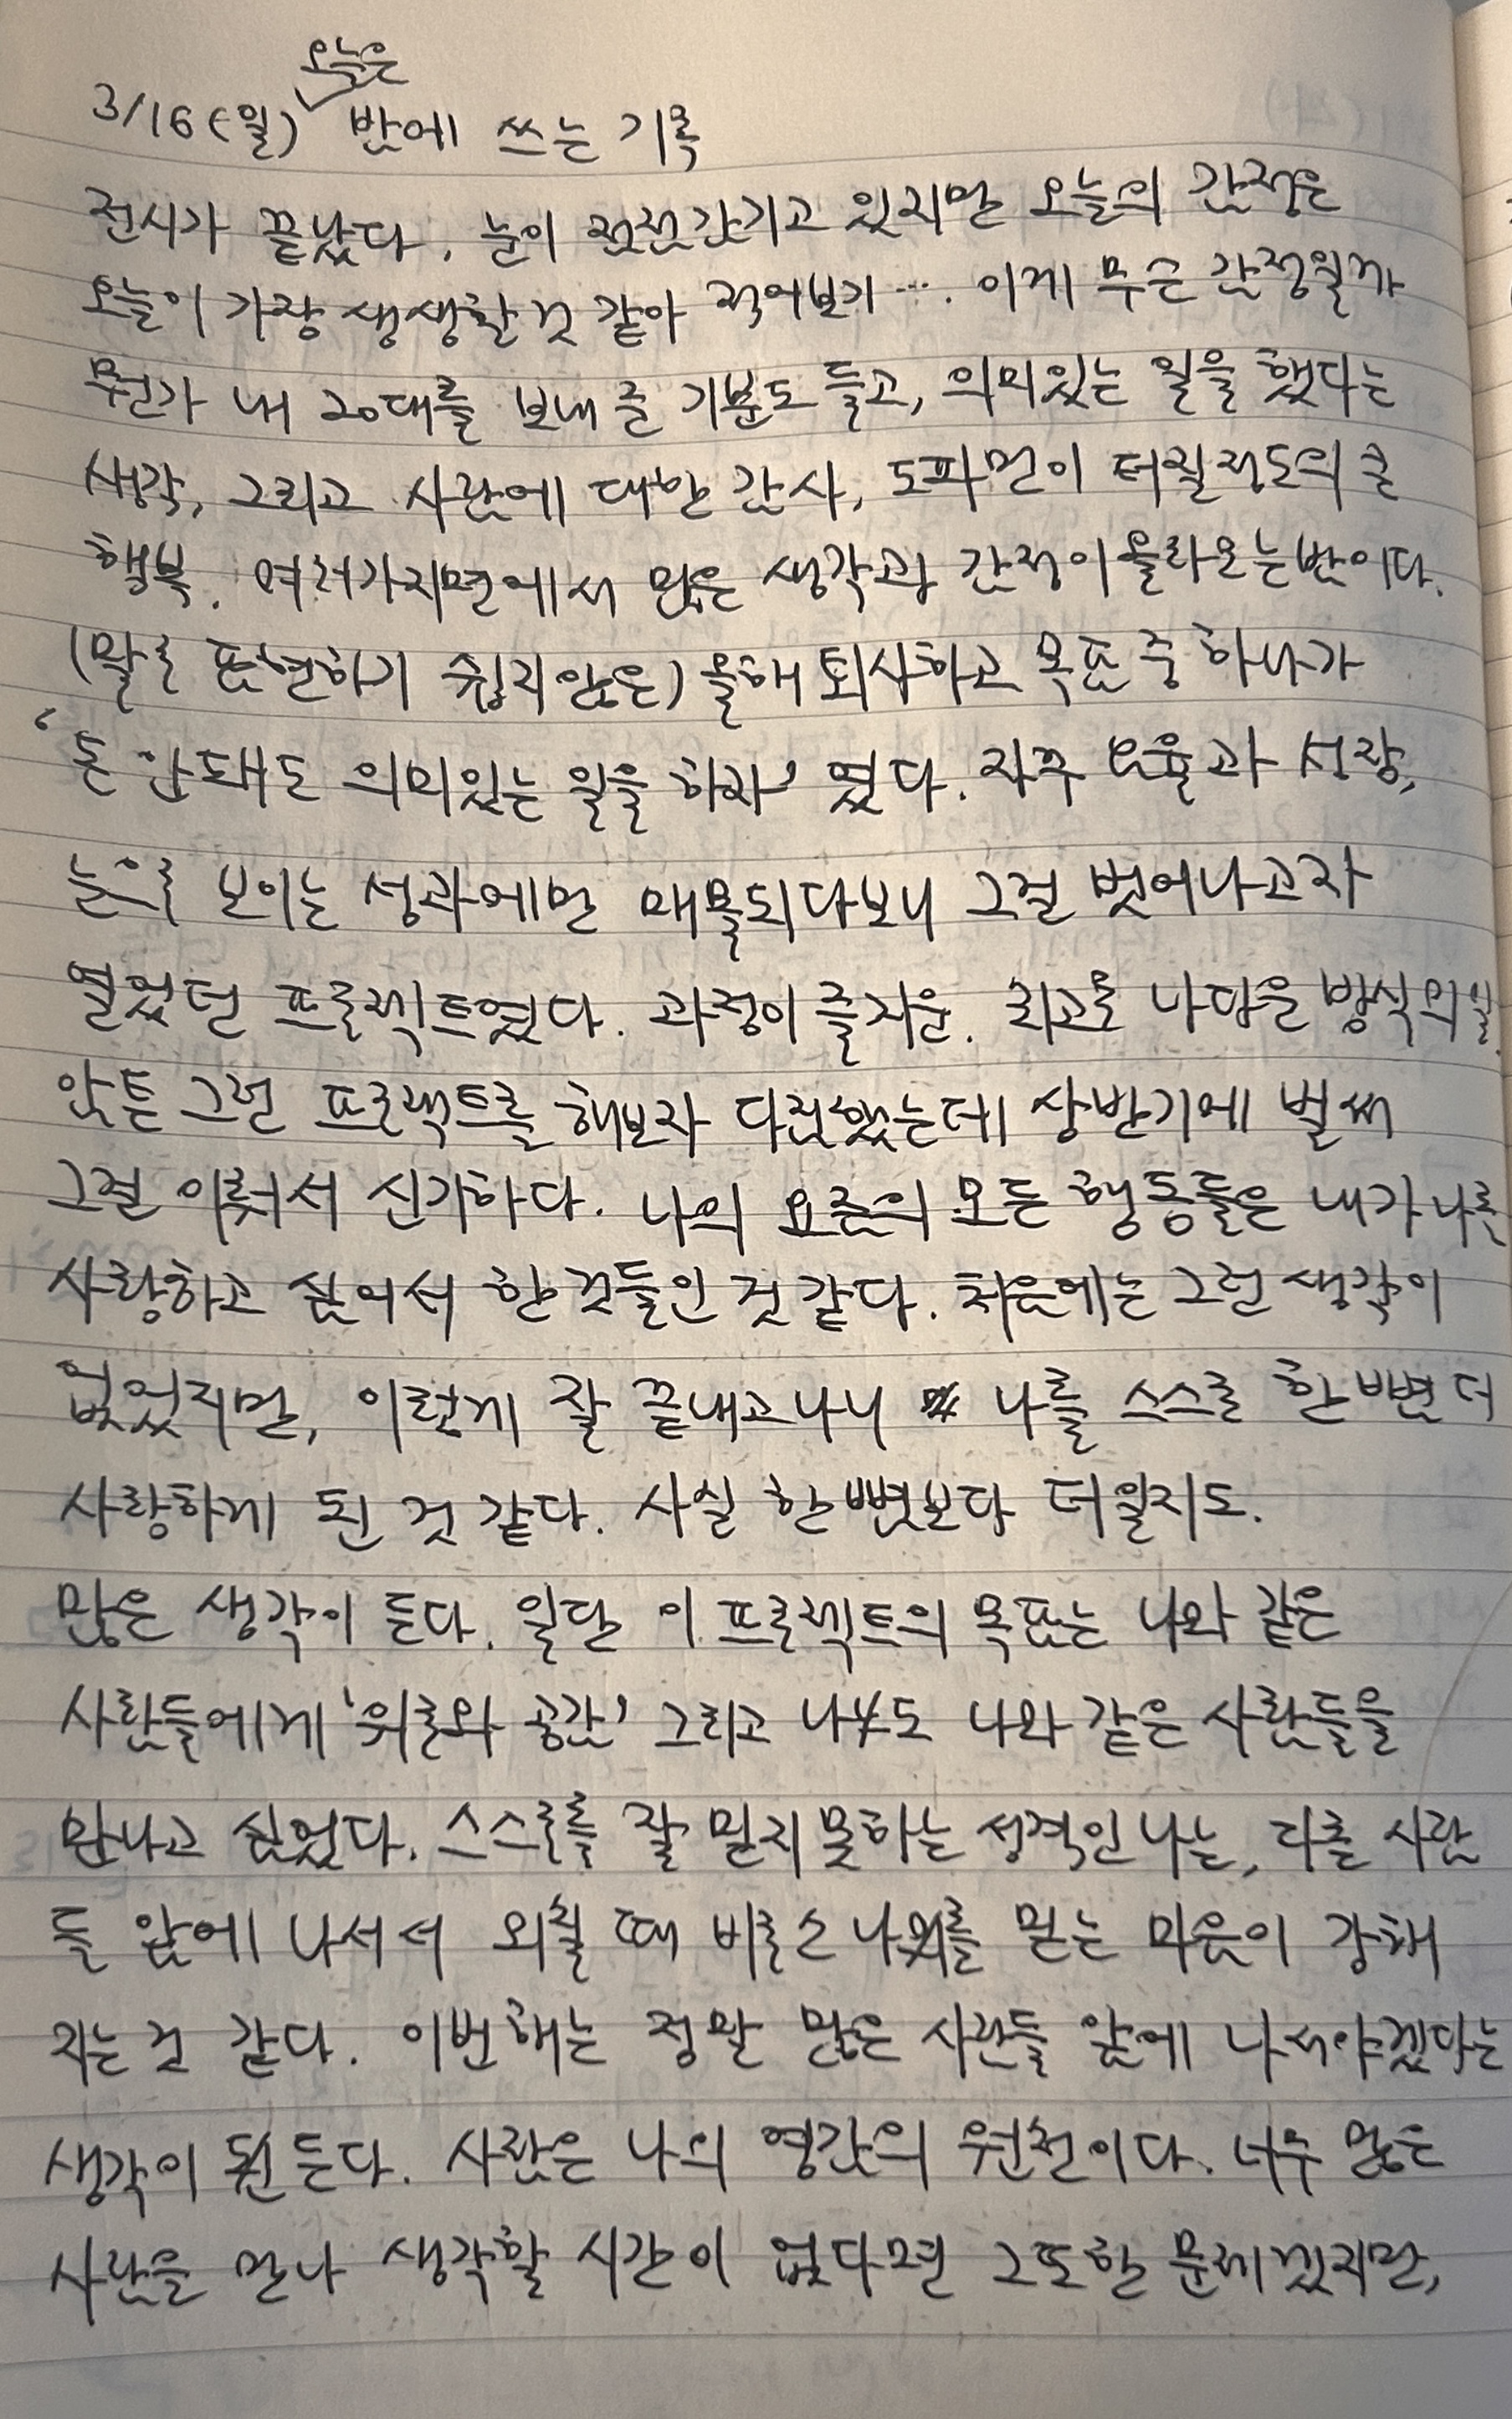 오늘은
3/16(월) 밤에 쓰는 기록
전시가 끝났다. 눈이 점점 감기고 있지만 오늘의 감정은
오늘이 가장 생생할 것 같아 적어보기…. 이게 무슨 감정일까
뭔가 내 20대를 보내 준 기분도 들고, 의미있는 일을 했다는
생각, 그리고 사람에 대한 감사, 도파민이 터질정도의 큰
행복. 여러가지면에서 많은 생각과 감정이 올라오는 밤이다.
(말로 표현하기 쉽지않은) 올해 퇴사하고 목표 중 하나가
‘돈 안돼도 의미있는 일을 하자’ 였다. 자꾸 효율과 성장,
눈으로 보이는 성과에만 매몰되다보니 그걸 벗어나고자
열었던 프로젝트였다. 과정이 즐거운. 최고로 나다운 방식의 일
암튼 그런 프로젝트를 해보자 다짐했는데 상반기에 벌써
그걸 이뤄서 신기하다. 나의 요즘의 모든 행동들은 내가 나를
사랑하고 싶어서 한 것들인 것 같다. 처음에는 그런 생각이
없었지만, 이렇게 잘 끝내고나니 나를 스스로 한 번 더
사랑하게 된 것 같다. 사실 한 뼘보다 더일지도.
많은 생각이 든다. 일단 이 프로젝트의 목표는 나와 같은
사람들에게 ‘위로와 공감’ 그리고 나도 나와 같은 사람들을
만나고 싶었다. 스스로를 잘 믿지 못하는 성격인 나는, 다른 사람
들 앞에 나서서 외칠 때 비로소 나를 믿는 마음이 강해
지는 것 같다. 이번해는 정말 많은 사람들 앞에 나서야겠다는
생각이 든다. 사람은 나의 영감의 원천이다. 너무 많은
사람을 만나 생각할 시간이 없다면 그 또한 문제겠지만,